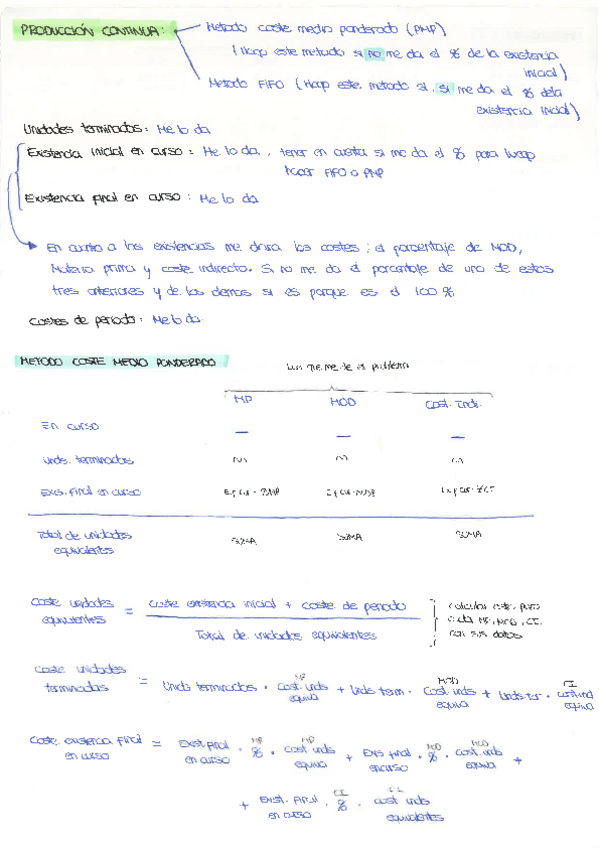 PRODUCCIÓN CONTINUA:
Método coste medio ponderado (PMP)
(Hago este metodo si no me da el % de la existencia
inicial)
Metodo FIFO (Hago este metodo si, si me da el % dela
existencia inicial)
Unidades terminadas: Me lo da
Existencia inicial en curso: Me lo da, tener en cuenta si me da el % para luego
hacer FIFO o PMP
Existencia final en curso: Me lo da
En cuanto a las existencias me daran los costes; el porcentaje de MOD,
Materia prima y coste indirecto. Si no me da el porcentaje de uno de estos
tres anteriores y de los demas si es porque es el 100%
Costes de periodo: Me lo da.
METODO COSTE MEDIO PONDERADO
MP MOD Cost. Indi.
En curso — — —
Unds. terminadas
Exis. Final en curso
Total de unidades
equivalentes
SUMA SUMA SUMA
Coste unidades
equivalentes
= Coste existencia inicial + coste de periodo
Total de unidades equivalentes
calcular
MP, MOD, CI.
con sus datos
Coste unidades
terminadas
= Unds terminadas · Cost. unds
equiva
MP
+ Unds term · Cost. unds
equiva
MOD
+ Unds ter · cost. und
equiva
CI
Coste existencia final
en curso
= Exist final
en curso
· % MP · cost unds
equiva
MP
+ Exis final
en curso
· % MOD · cost. unds
equiva
MOD
+
+ Exist. Final
en curso
· % CI · cost unds
equivalentes
CI